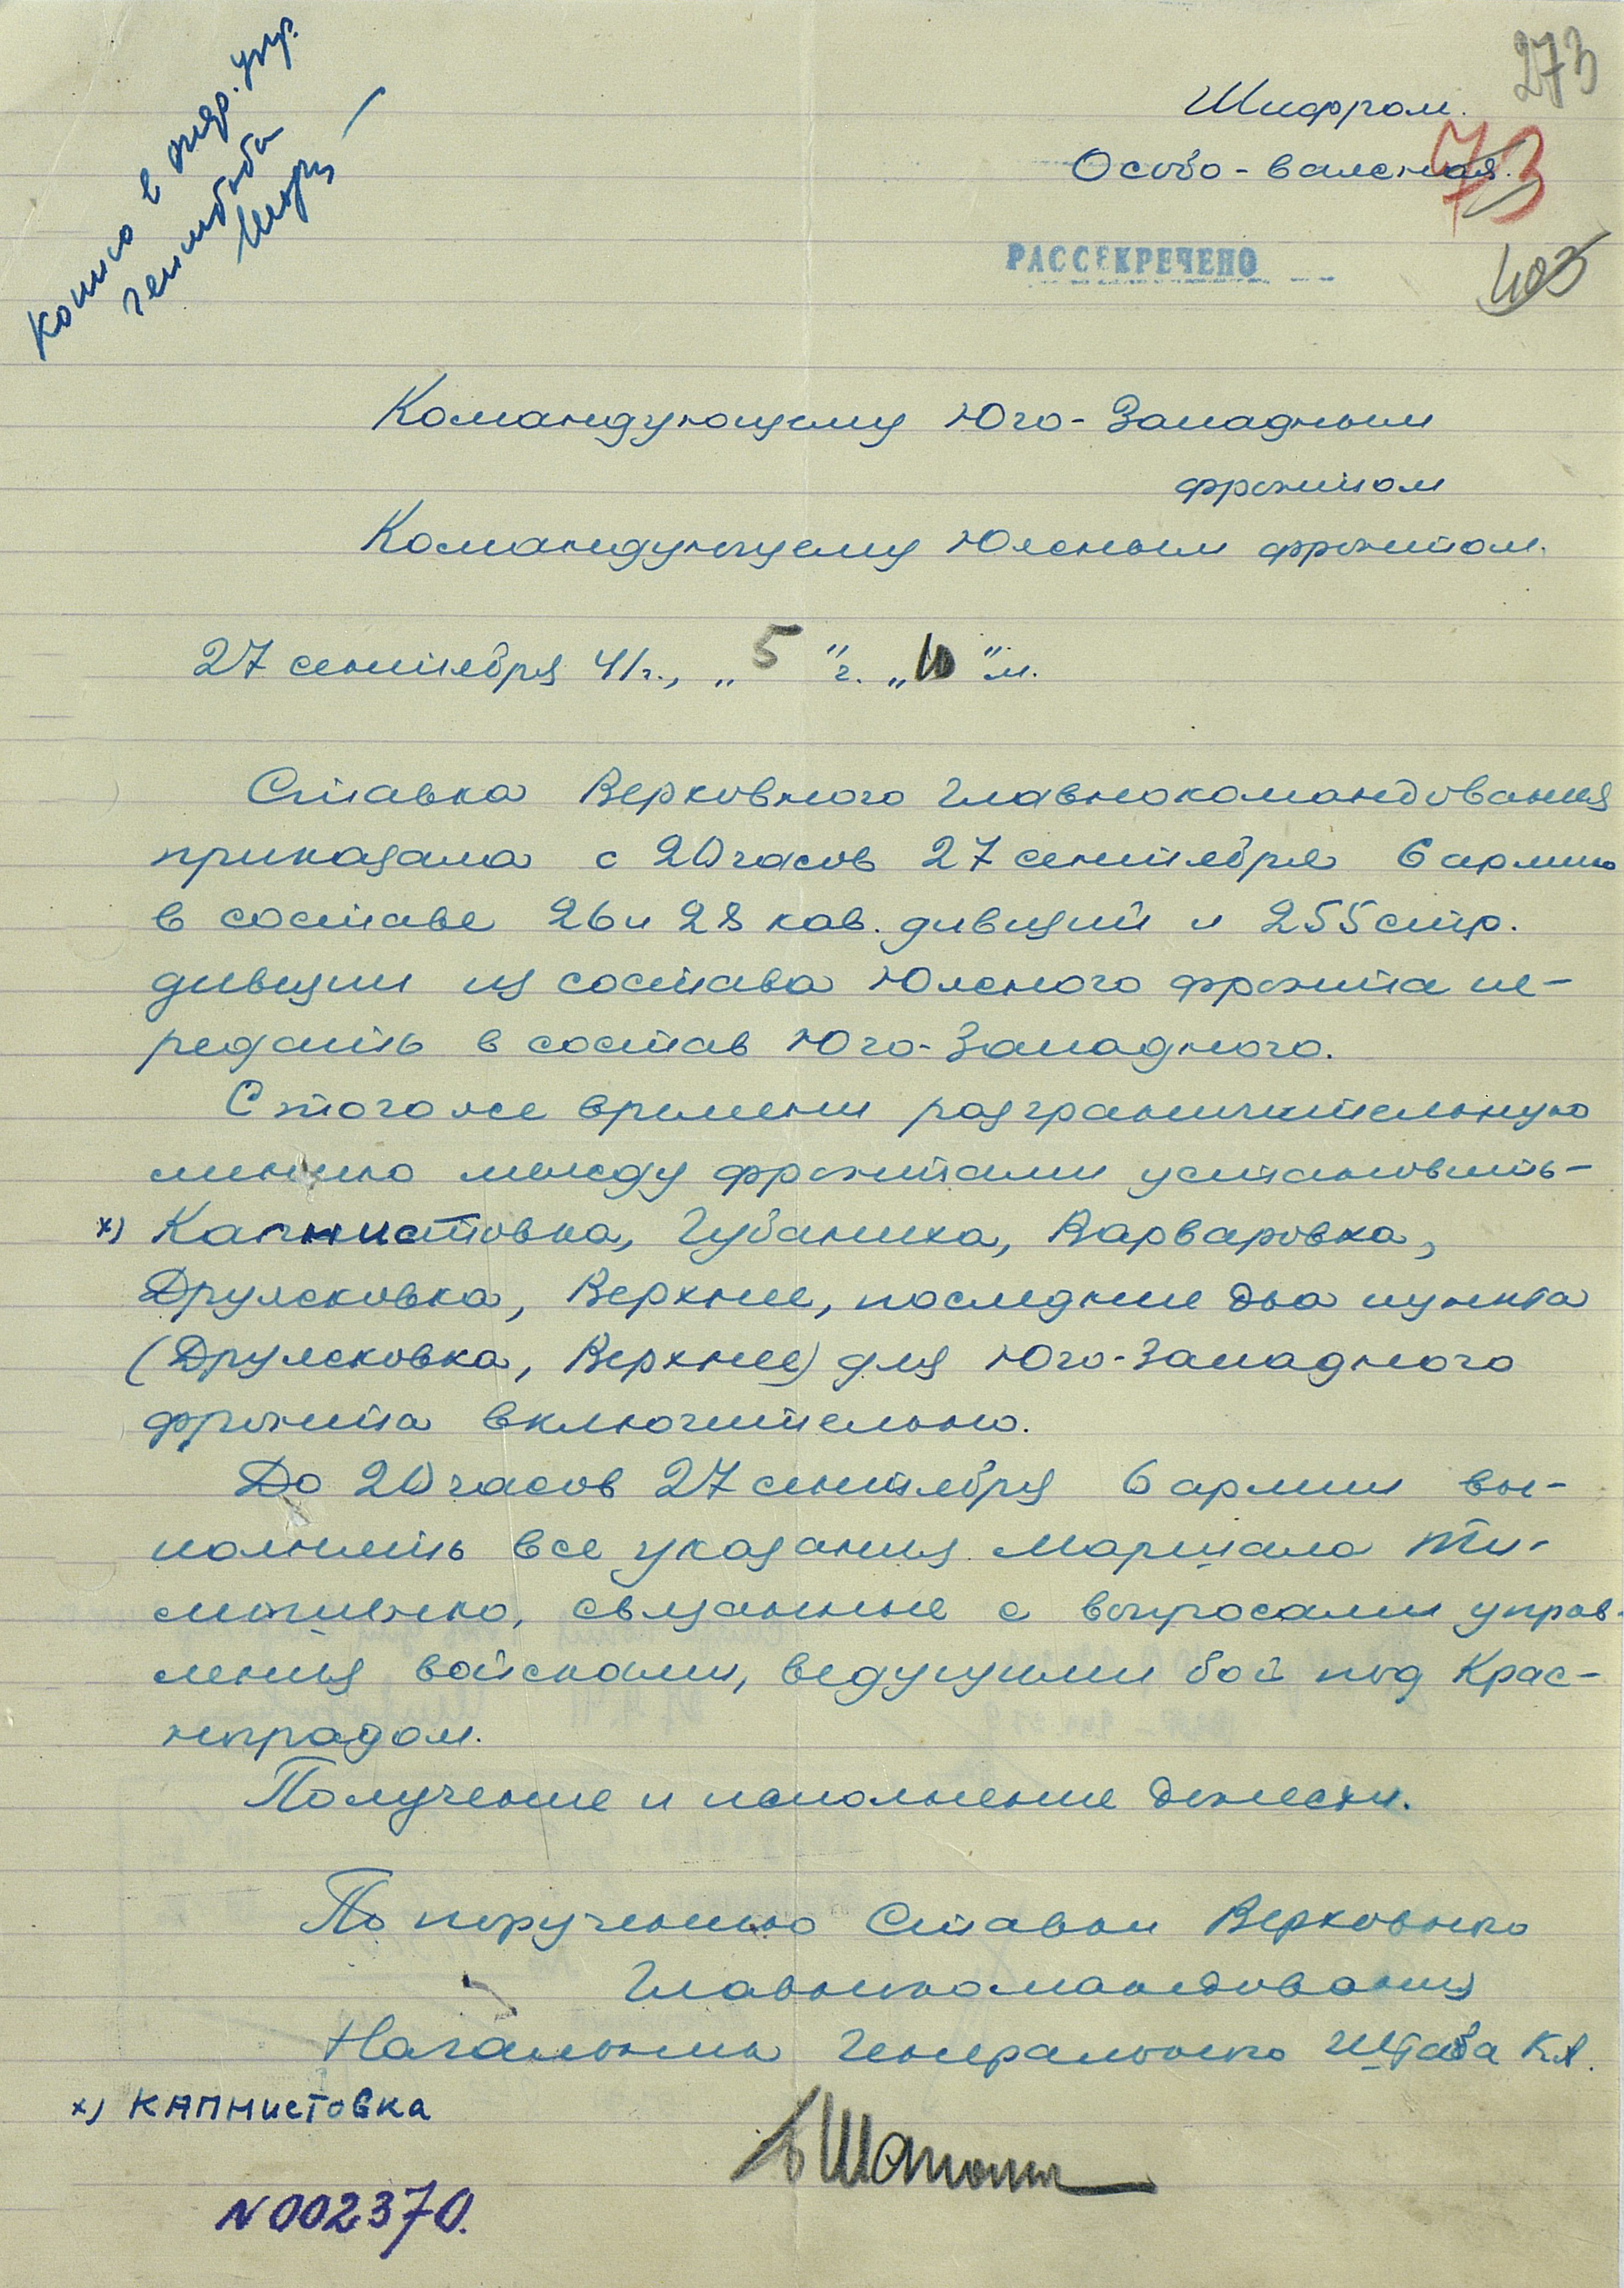 273
Шифром.
Особо-важная.
73
РАССЕКРЕЧЕНО
403
Копию в опер. упр.
генштаба
Командующему Юго-Западным
фронтом
Командующему Южным фронтом.
27 сентября 41г., „5" ч. „10" м.
Ставка Верховного Главнокомандования
приказала с 20 часов 27 сентября 6 армию
в составе 26 и 28 кав. дивизий и 255 стр.
дивизии из состава Южного фронта пе-
редать в состав Юго-Западного.
С того же времени разграничительную
линию между фронтами установить-
х) Капнистовка, Губиниха, Варваровка,
Дружковка, Верхнее, последние два пункта
(Дружковка, Верхнее) для Юго-Западного
фронта включительно.
До 20 часов 27 сентября 6 армии вы-
полнять все указания Маршала Ти-
мошенко, связанные с вопросами управ-
ления войсками, ведущими бой под Крас-
ноградом.
Получение и исполнение донести.
По поручению Ставки Верховного
Главнокомандования
Начальник Генерального Штаба КА.
х) КАПНИСТОВКА
Б Шапошн
N 002370.